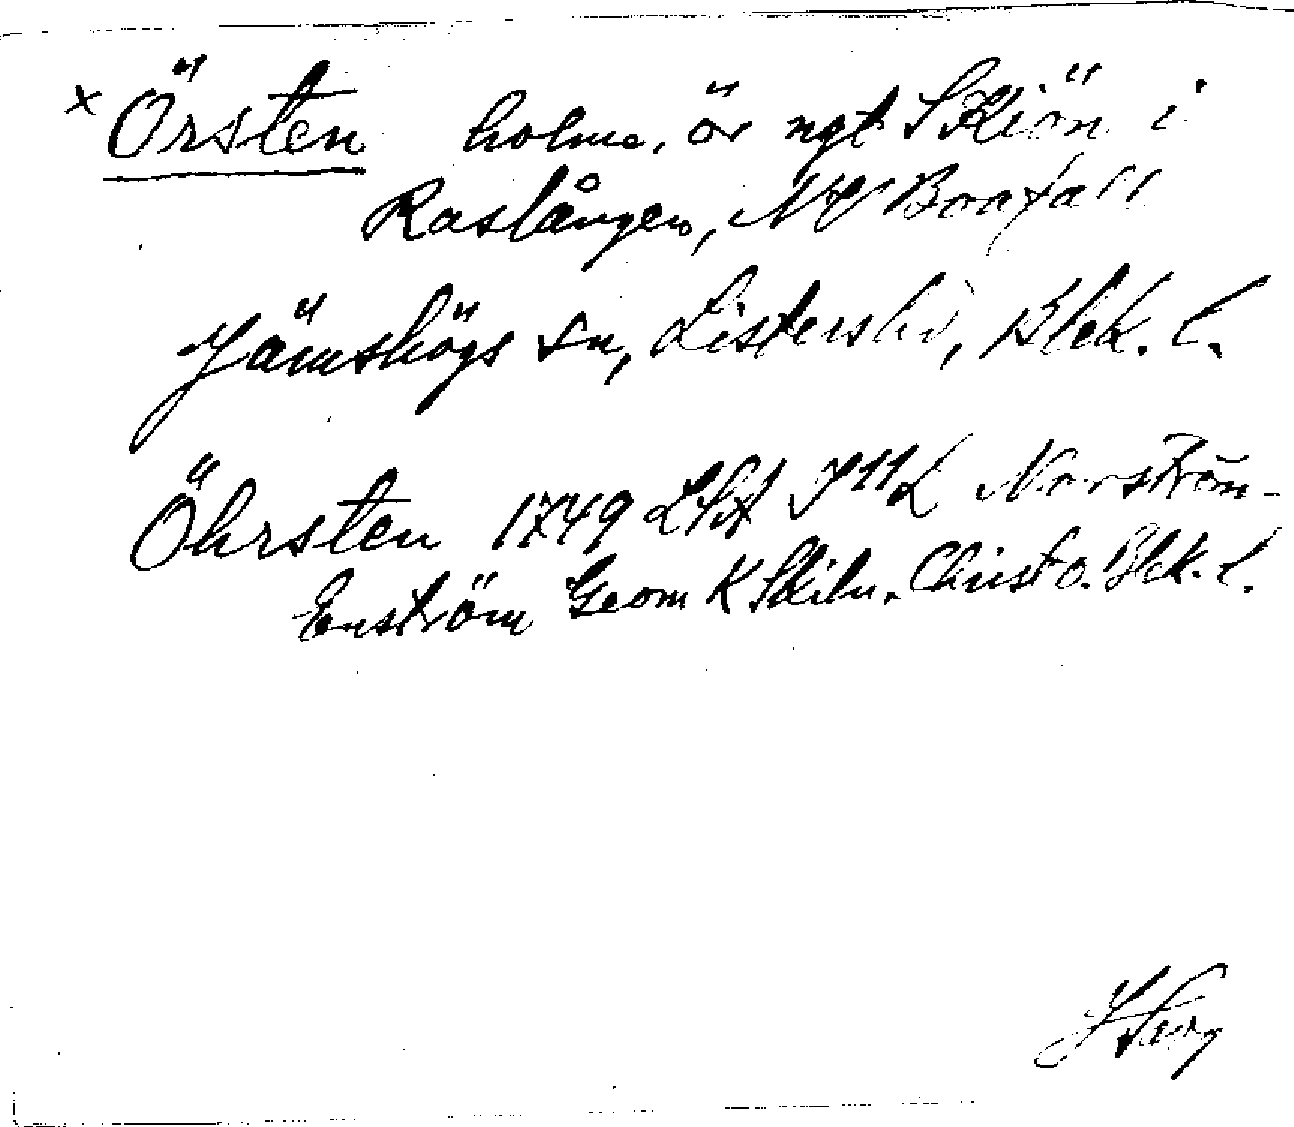 × Örsten holme, ö ngt Skiön i
Raslången, NV Boafall
Jämshögs sn, Listers hd, Blek. l.
Öhrsten 1749 LSA Norström-
Enström Geom K Skiln. Christ o. Blek. l.